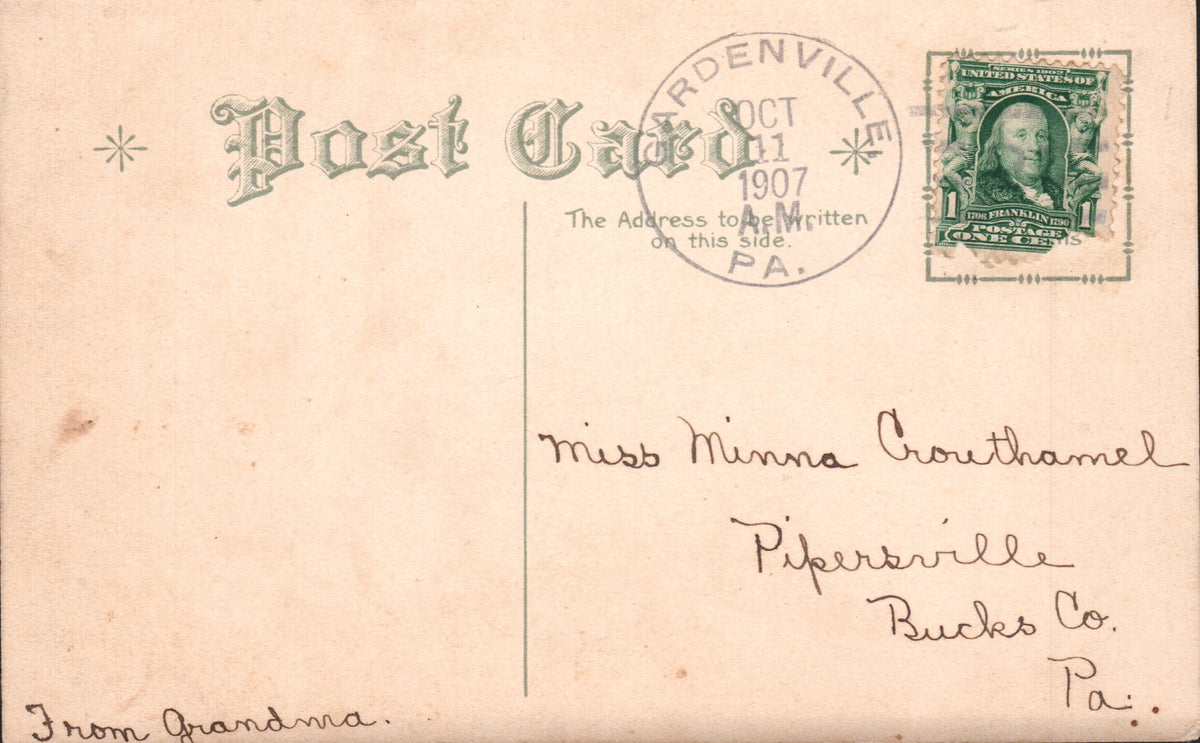 Post Card
GARDENVILLE,
OCT
11
1907
A.M.
PA.
The Address to be written
on this side.
SERIES 1902
UNITED STATES OF
AMERICA
1 1706 FRANKLIN 1790 1
POSTAGE
ONE CENTS
Miss Minna Crouthamel
Pipersville
Bucks Co.
Pa.
From Grandma.